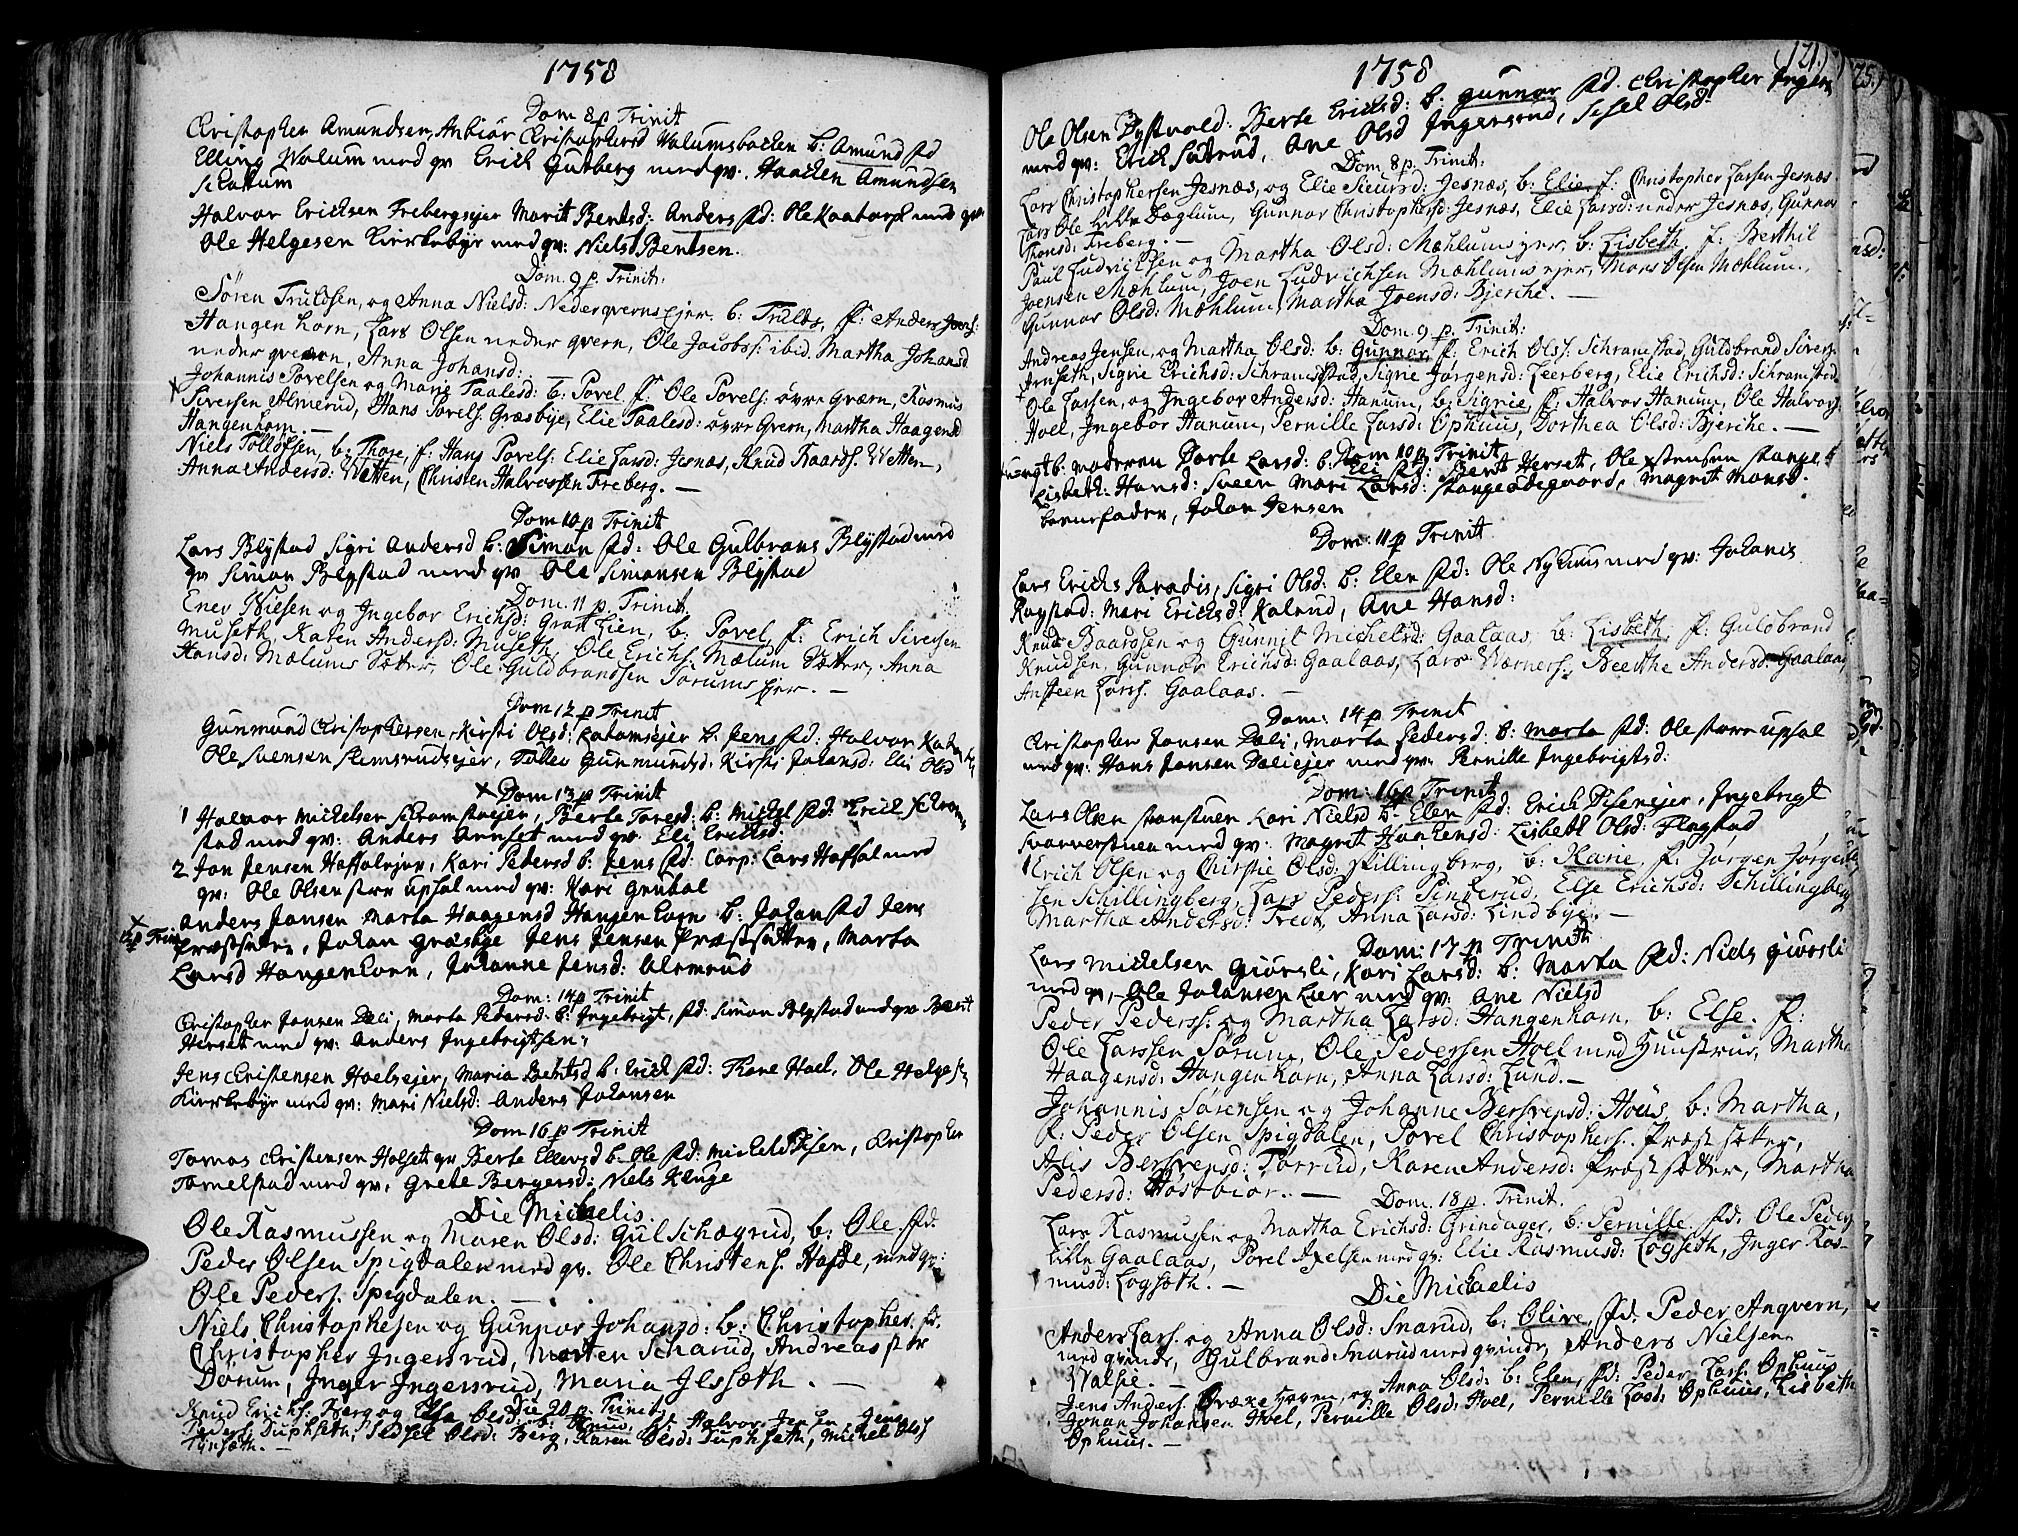 1758
Dom 8 p Trinit
Christopher Amundsen, Anbiør Christophersd Walumsbachen b: Amund fd
Elling Walum med qv Erich Gutberg med qv. Haachen Amundsen
Halvor Erichsen Frebergsejer Marit Bentsd: b: Anders fd: Ole Kaatorp med qv
Ole Helgesen Kirkebye med qv: Niels Bentsen.
Dom. 9 p. Trinit:
Søren Truldsen, og Anna Nielsd: Nederqvernsejer. b: Trulds, f: Anders Joens:
Hangenhorn, Lars Olsen neder qvern, Ole Jacobss: ibid. Martha Johansd
neder qvern, Anna Johansd:
Johannis Povelsen og Marie Taalesd: b. Povel f: Ole Povels: øvre Qværn, Rasmus
Siversen Almerud, Hans Povels. Græsbye, Elie Taalesd: øvre Qvern, Martha Haagensd
Hangenhorn. —
Niels Tollofsen, b: Thore, f: Hans Povels: Elie Larsd: Jesnæs, Knud Baards. Wetten,
Anna Andersd: Wetten, Christen Halvorsen Freberg. —
Dom 10 p Trinit
Lars Blystad Sigri Andersd b: Simon fd: Ole Gulbrans Blystad med
qv Simon Blystad med qv Ole Simonsen Blystad
Dom. 11 p. Trinit.
Ener Nielsen og Ingebor Erichsd: Grøtlien, b: Povel f: Erich Siversen
Museth, Karen Andersd: Museth, Ole Erichs: Mælum Sætter, Anna
Hansd: Mælums Sætter, Ole Guldbrandsen Sørums Ejer. —
Dom 12 p Trinit
Gunmund Christophersen, Kirsti Olsd: b: Jens fd: Halvor
Ole Svensen Slemsrudsejer, Tollev Gunmunds: Kirsti Johansd: Eli Olsd
x Dom 13 p Trinit
1 Halvor Michelsen Schramstaejer, Berte Toresd: b: Michel fd: Erich Schram
stad med qv: Anders Arnset med qv Eli Erichsd:
2 Jon Jensen Haffolsejer, Kari Pedersd b: Jens fd: Corp: Lars Hafsal med
qv: Ole Olsen støre Upsal med qv: Kari
x Anders Jansen Marta Haagensd Hangenhorn b: Johan fd Jens
12 p Trin Præstsæter, Johan Græsbye Jens Jensen Præstsætter, Marta
Larsd Hangenhorn, Johanne Jensd: Almerud
Dom: 14 p Trinit
Christopher Jansen Dæli, Marta Pedersd. b: Ingebrigt, fd: Simon Blystad med qv Berit
Herset med qv: Anders Ingebrigtsen.
Jens Cristensen Hoelsejer, Maria b: Erich fd: Tore Hoel, Ole Helges:
Kirkebye med qv: Mari Nielsd: Anders Johansen
Dom 16 p Trinit
Tomas Christensen Holset qv Berte Ellevsd b. Ole fd: Michel Disen, Christopher
Tomelstad med qv. Grete Bergersd: Niels Kluge
Die Michaelis
Ole Rasmussen og Maren Olsd: Gulschægrud, b: Ole. fd:
Peder Olsen Spigdalen med qv. Ole Christens. Hafde, med qv:
Ole Peders. Spigdalen. —
Niels Christophesen og Gunnor Johansd: b: Christopher. f:
Christopher Ingersrud, Morten Scharud, Andreas støre
Dørum, Inger Ingersrud, Maria Jelsæth. —
Die 20 p. Trinit.
Knud Erichs: Berg og Else Olsd: b: Knud, f: Halvor Jensen, Jens
Peders: Tuphseth, Sidsel Olsd: Berg, Karen Olsd: Tuphseth, Michel Olss
Tynseth. —
1758
121.
Ole Olsen Dystvold: Berte Erichsd: b: Gunnor fd. Christopher Inger
med qv: Erich Sætrud, Ane Olsd Ingersrud, Sissel Olsd.
Dom. 8 p. Trinit:
Lars Christophersen Jesnæs, og Elie Siursd: Jesnæs, b: Elie. f: Christopher Larsen Jesnæs.
Lars Ole Lille Dæglum, Gunnor Christophersd: Jesnæs, Elie Larsd: neder Jesnæs, Gunnor
Thorsd: Freberg. —
Paul Ludvichsen og Martha Olsd: Mæhlumsejer, b: Lisbeth. f: Berthil
Joensen Mæhlum, Joen Ludvichsen Mæhlumsejer, Mons Olsen Mæhlum,
Gunnor Olsd: Mæhlum, Martha Joensd: Bjerche. —
Dom. 9. p. Trinit:
Andreas Jensen, og Martha Olsd: b: Gunnor, f: Erich Olss. Schramstad, Guldbrand Sørens.
Arnseth, Sigrie Erichsd: Schramstad, Sigrie Jørgensd: Leerberg, Elie Erichsd: Schramstad.
Ole Larsen, og Ingebor Andersd: Hanum, b: Sigrie, f: Halvor Hanum, Ole Halvors:
Hoel, Ingebor Hanum, Pernille Larsd: Ophuus, Dorthea Olsd: Bjerche. —
Dom 10 p Trinit
uægt b. moderen Dorte Larsd: b. Eli fd: Berit Herset, Ole Stensen Stange
Lisbeth Hansd: Sveen Mari Larsd: Stange ødegaard, Magrit Monsd.
barnefader, Johan Jensen
Dom: 11 p Trinit
Lars Erichs Paradis, Sigri Olsd: b: Elen fd: Ole Nyhuus med qv: Johanis
Rogstad: Mari Erichsd: Kalrud, Ane Hansd:
Knud Baardsen og Gunnil Michelsd: Gaalaas, b: Lisbeth, f: Guldbrand
Knudsen, Gunnor Erichsd: Gaalaas, Lars Værners: Beathe Andersd: Gaalaas,
Ansteen Larss. Gaalaas. —
Dom: 14 p Trinit
Christopher Jansen Dæli, Marta Pedersd: b: Marta fd: Ole støre Upsal
med qv: Hans Jansen Dæliejer med qv: Pernille Ingebrigtsd:
Dom: 16 p Trinit
Lars Olsen Kari Nielsd b: Elen fd: Erich Disenejer, Ingebrigt
Svarverstuen med qv: Magrit Haakensd: Lisbeth Olsd: Flagstad
Erich Olsen og Chirstie Olsd: Skillingberg, b: Karie, f: Jørgen Jørgen
sen Schillingberg, Lars Peders: Pinderud, Else Erichsd: Schillingberg
Martha Andersd: Fredr, Anna Larsd: Lindbye. —
Dom: 17 p Trinit
Lars Michelsen Giørsli, Kari Larsd: b: Marta fd: Niels Giørsli
med qv, Ole Johansen Lier med qv: Ane Nielsd
Peder Pederss: og Martha Larsd: Hangenhorn, b: Else. f:
Ole Larssen Sørum, Ole Pedersen Hoel med Huustrue, Martha
Haagensd: Hangenhorn, Anna Larsd: Lund. —
Johannis Sørensen og Johanne Bersvensd: Hoüs, b: Martha,
f: Peder Olsen Spigdalen, Povel Christophers: Præst sæter,
Alis Bersvensd: Tørrud, Karen Andersd: Præst sætter, Martha
Pedersd: Høstbiør. —
Dom. 18 p. Trinit.
Lars Rasmusen og Martha Erichsd: Grindager, b: Pernille. fd. Ole Peders
Lille Gaalaas, Povel Axelsen med qv: Elie Rasmusd: Løgseth, Inger Ras-
musd: Løgseth. —
Die Michaelis
Anders Lars. og Anna Olsd: Snarud, b: Olive, fd: Peder Angvern,
med qvinde, Gulbrand Snarud med qvinde, Anders Nielsen
Walsie. —
Jens Anders: og Anna Olsd: b: Elen, fd: Peder Lars. Ophuus
Johan Johansen Hoel, Pernille Olsd: Hoel, Pernille Larsd: Ophuus, Lisbeth
Ophuus. —